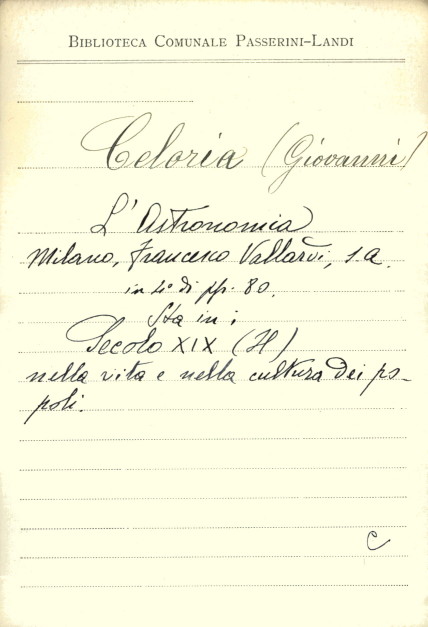 BIBLIOTECA COMUNALE PASSERINI-LANDI
Celoria (Giovanni)
L'Astronomia
Milano, Francesco Vallardi, s.a.
in 4° di pp. 80.
Sta in:
Secolo XIX (Il)
nella vita e nella cultura dei po-
poli.
C